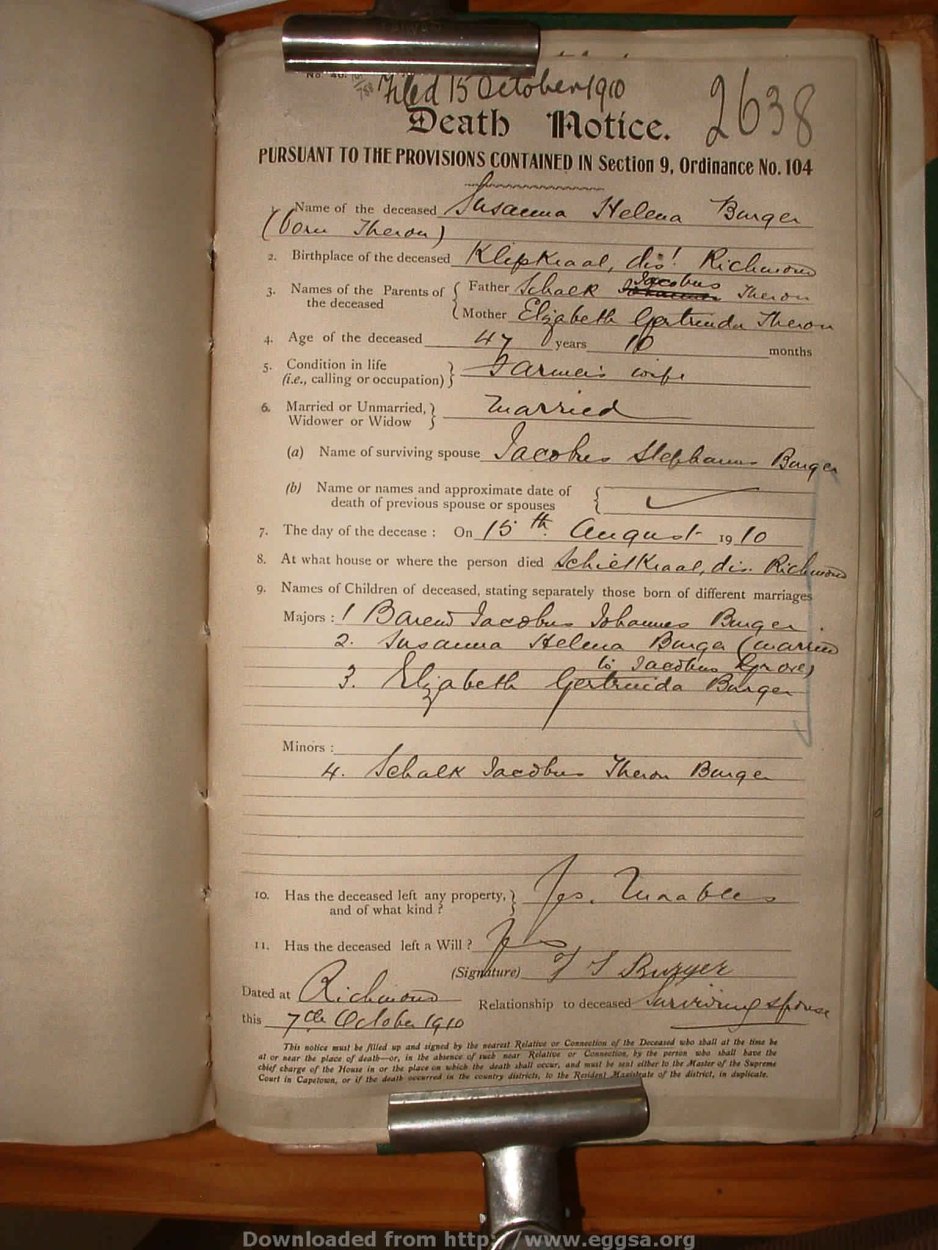 No. 40.
Filed 15 October 1910 2638
Death Notice.
PURSUANT TO THE PROVISIONS CONTAINED IN Section 9, Ordinance No. 104
1. Name of the deceased Susanna Helena Burger
(born Theron)
2. Birthplace of the deceased Klipkraal, dis! Richmond
3. Names of the Parents of the deceased { Father Schalk Jacobus Theron
Mother Elizabeth Gertruida Theron
4. Age of the deceased 47 years 10 months
5. Condition in life
(i.e., calling or occupation) } Farmer's wife
6. Married or Unmarried,
Widower or Widow } Married
(a) Name of surviving spouse Jacobus Stephanus Burger
(b) Name or names and approximate date of
death of previous spouse or spouses {
7. The day of the decease : On 15th August 1910
8. At what house or where the person died Schietkraal, dis. Richmond
9. Names of Children of deceased, stating separately those born of different marriages
Majors : 1 Barend Jacobus Johannes Burger
2. Susanna Helena Burger (married
to Jacobus Grove)
3. Elizabeth Gertruida Burger
Minors :
4. Schalk Jacobus Theron Burger
10. Has the deceased left any property,
and of what kind ? } Yes.
11. Has the deceased left a Will ? Yes
(Signature) Burger
Dated at Richmond Relationship to deceased Surviving spouse
this 7th October 1910
This notice must be filled up and signed by the nearest Relative or Connection of the Deceased who shall at the time be
at or near the place of death—or, in the absence of such near Relative or Connection, by the person who shall have the
chief charge of the House in or the place on which the death shall occur, and must be sent either to the Master of the Supreme
Court in Capetown, or if the death occurred in the country districts, to the Resident Magistrate of the district, in duplicate.
Downloaded from http://www.eggsa.org